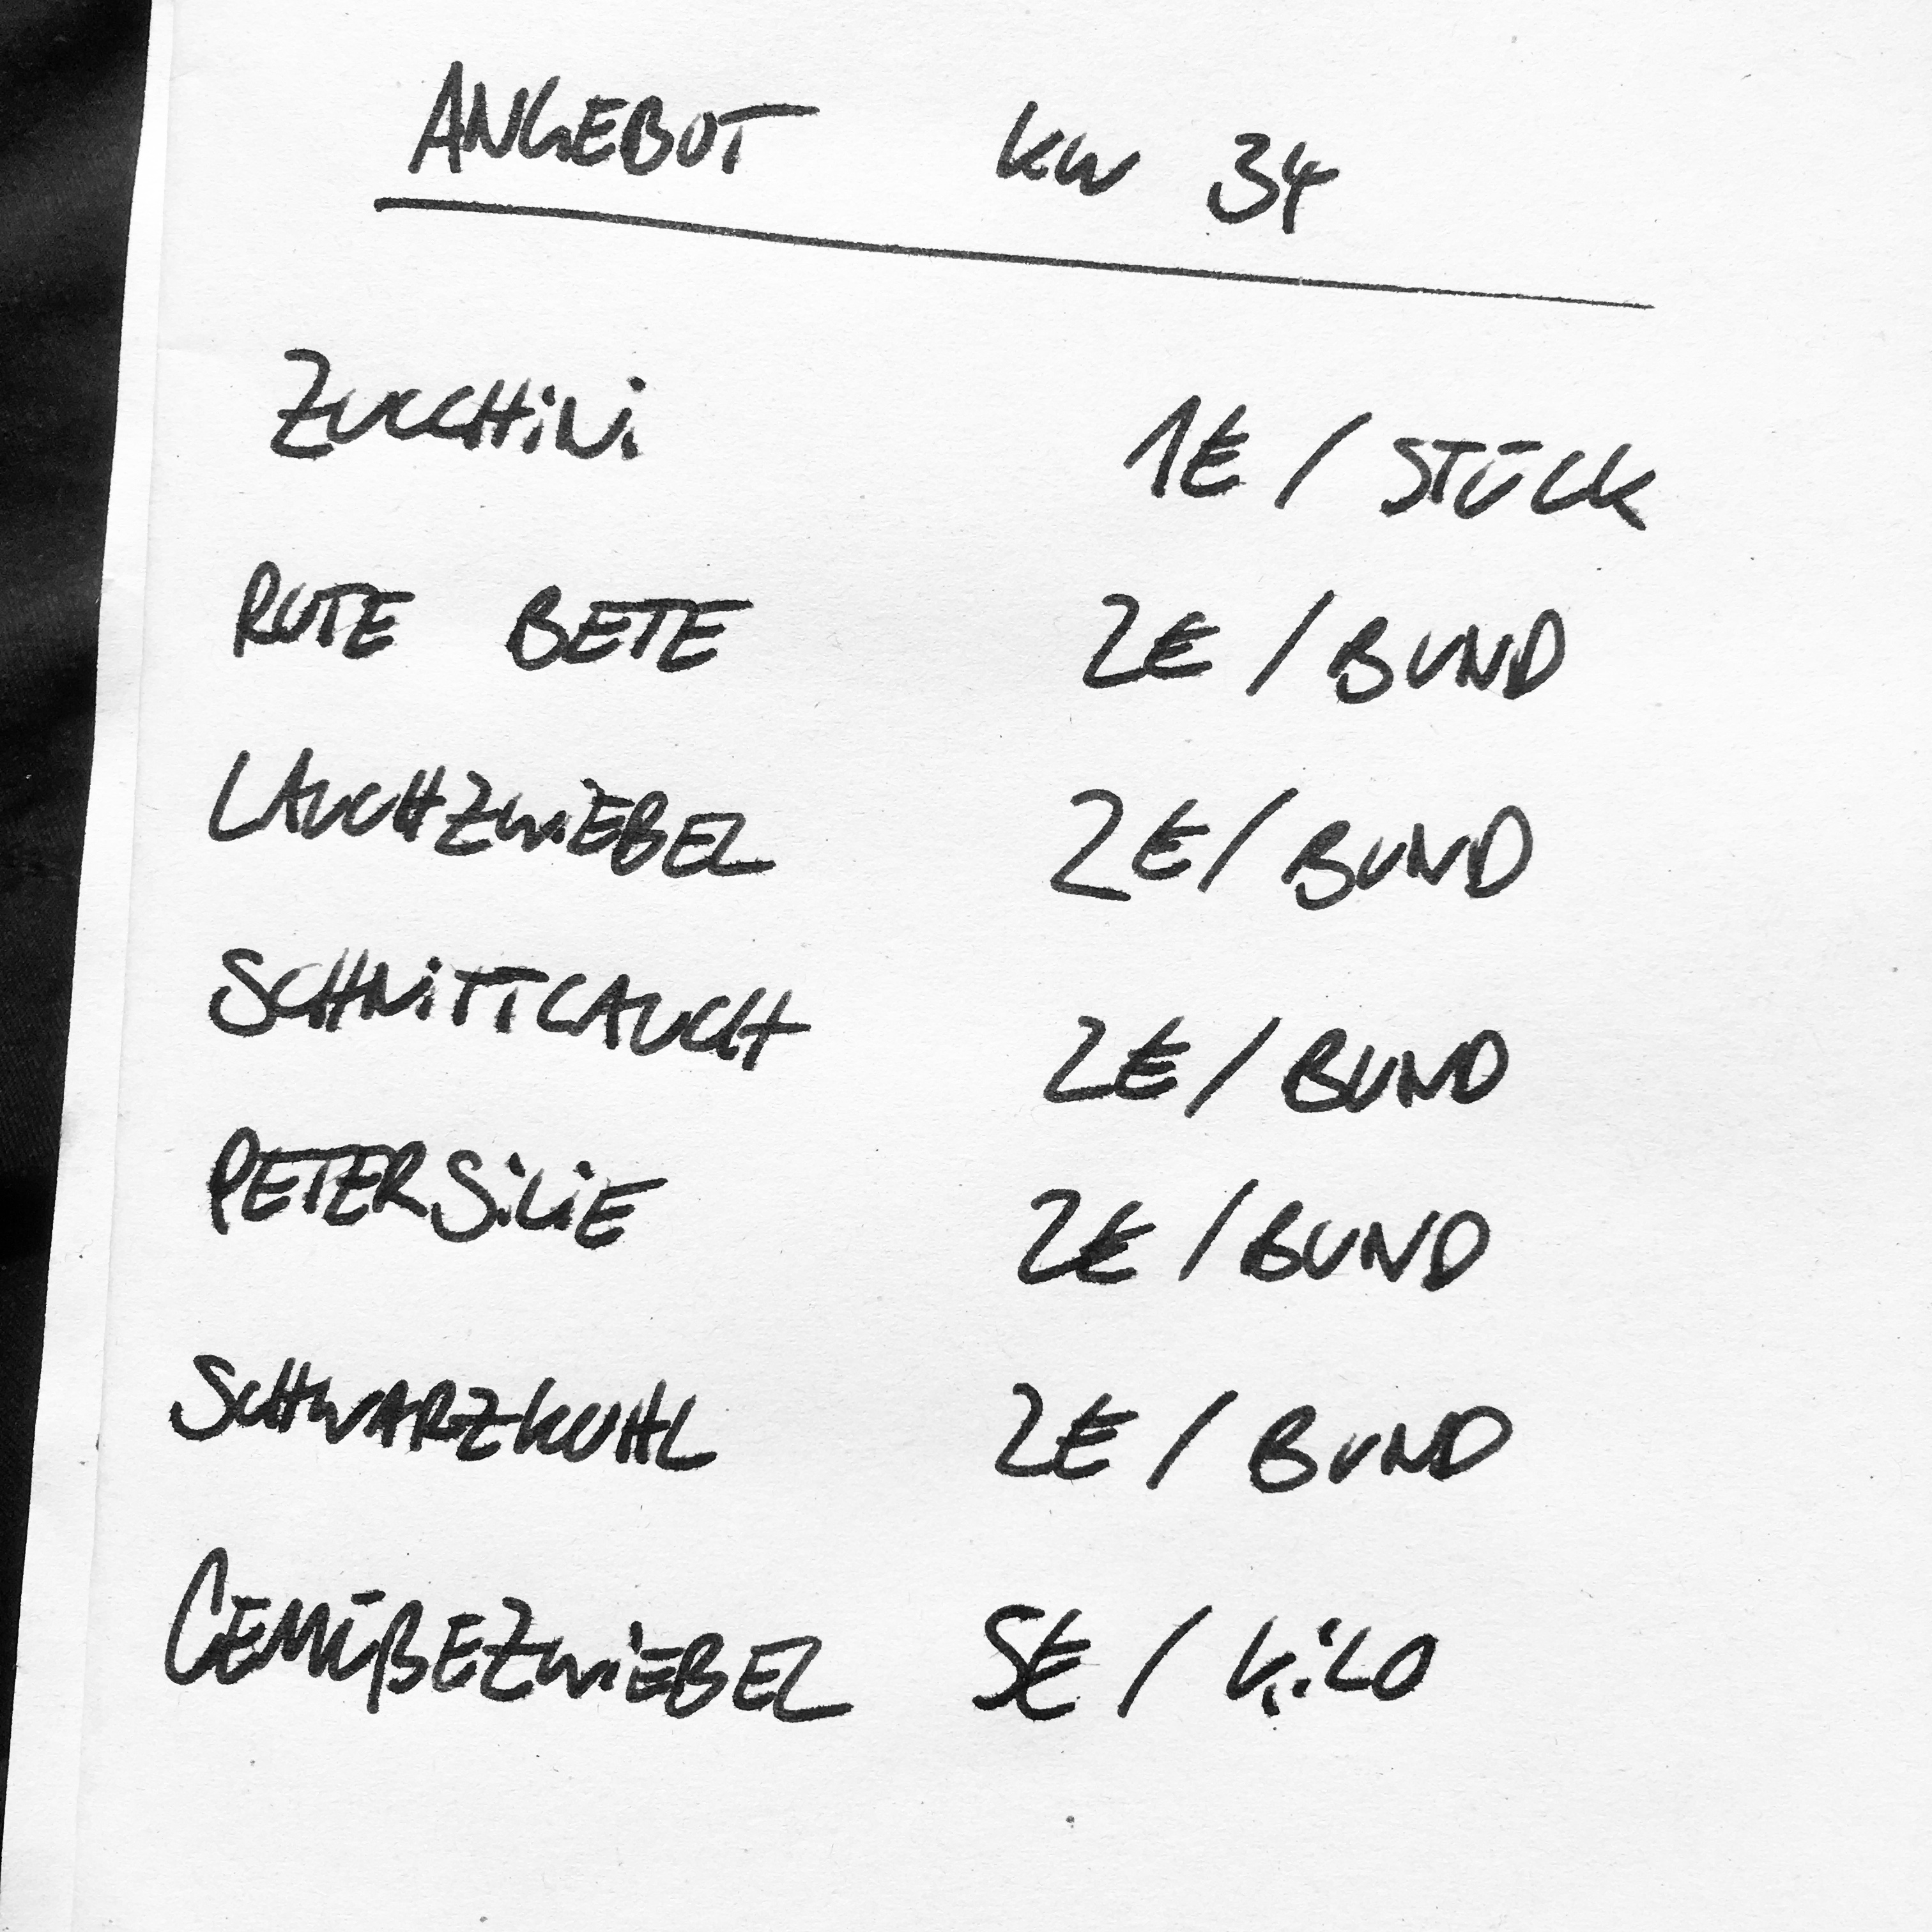 ANGEBOT KW 34
ZUCCHiNi 1€ / STÜCK
ROTE BETE 2€ / BUND
LAUCHZWiEBEL 2€ / BUND
SCHNiTTLAUCH 2€ / BUND
PETERSiLiE 2€ / BUND
SCHWARZKOHL 2€ / BUND
GEMÜßEZWiEBEL 5€ / KiLO